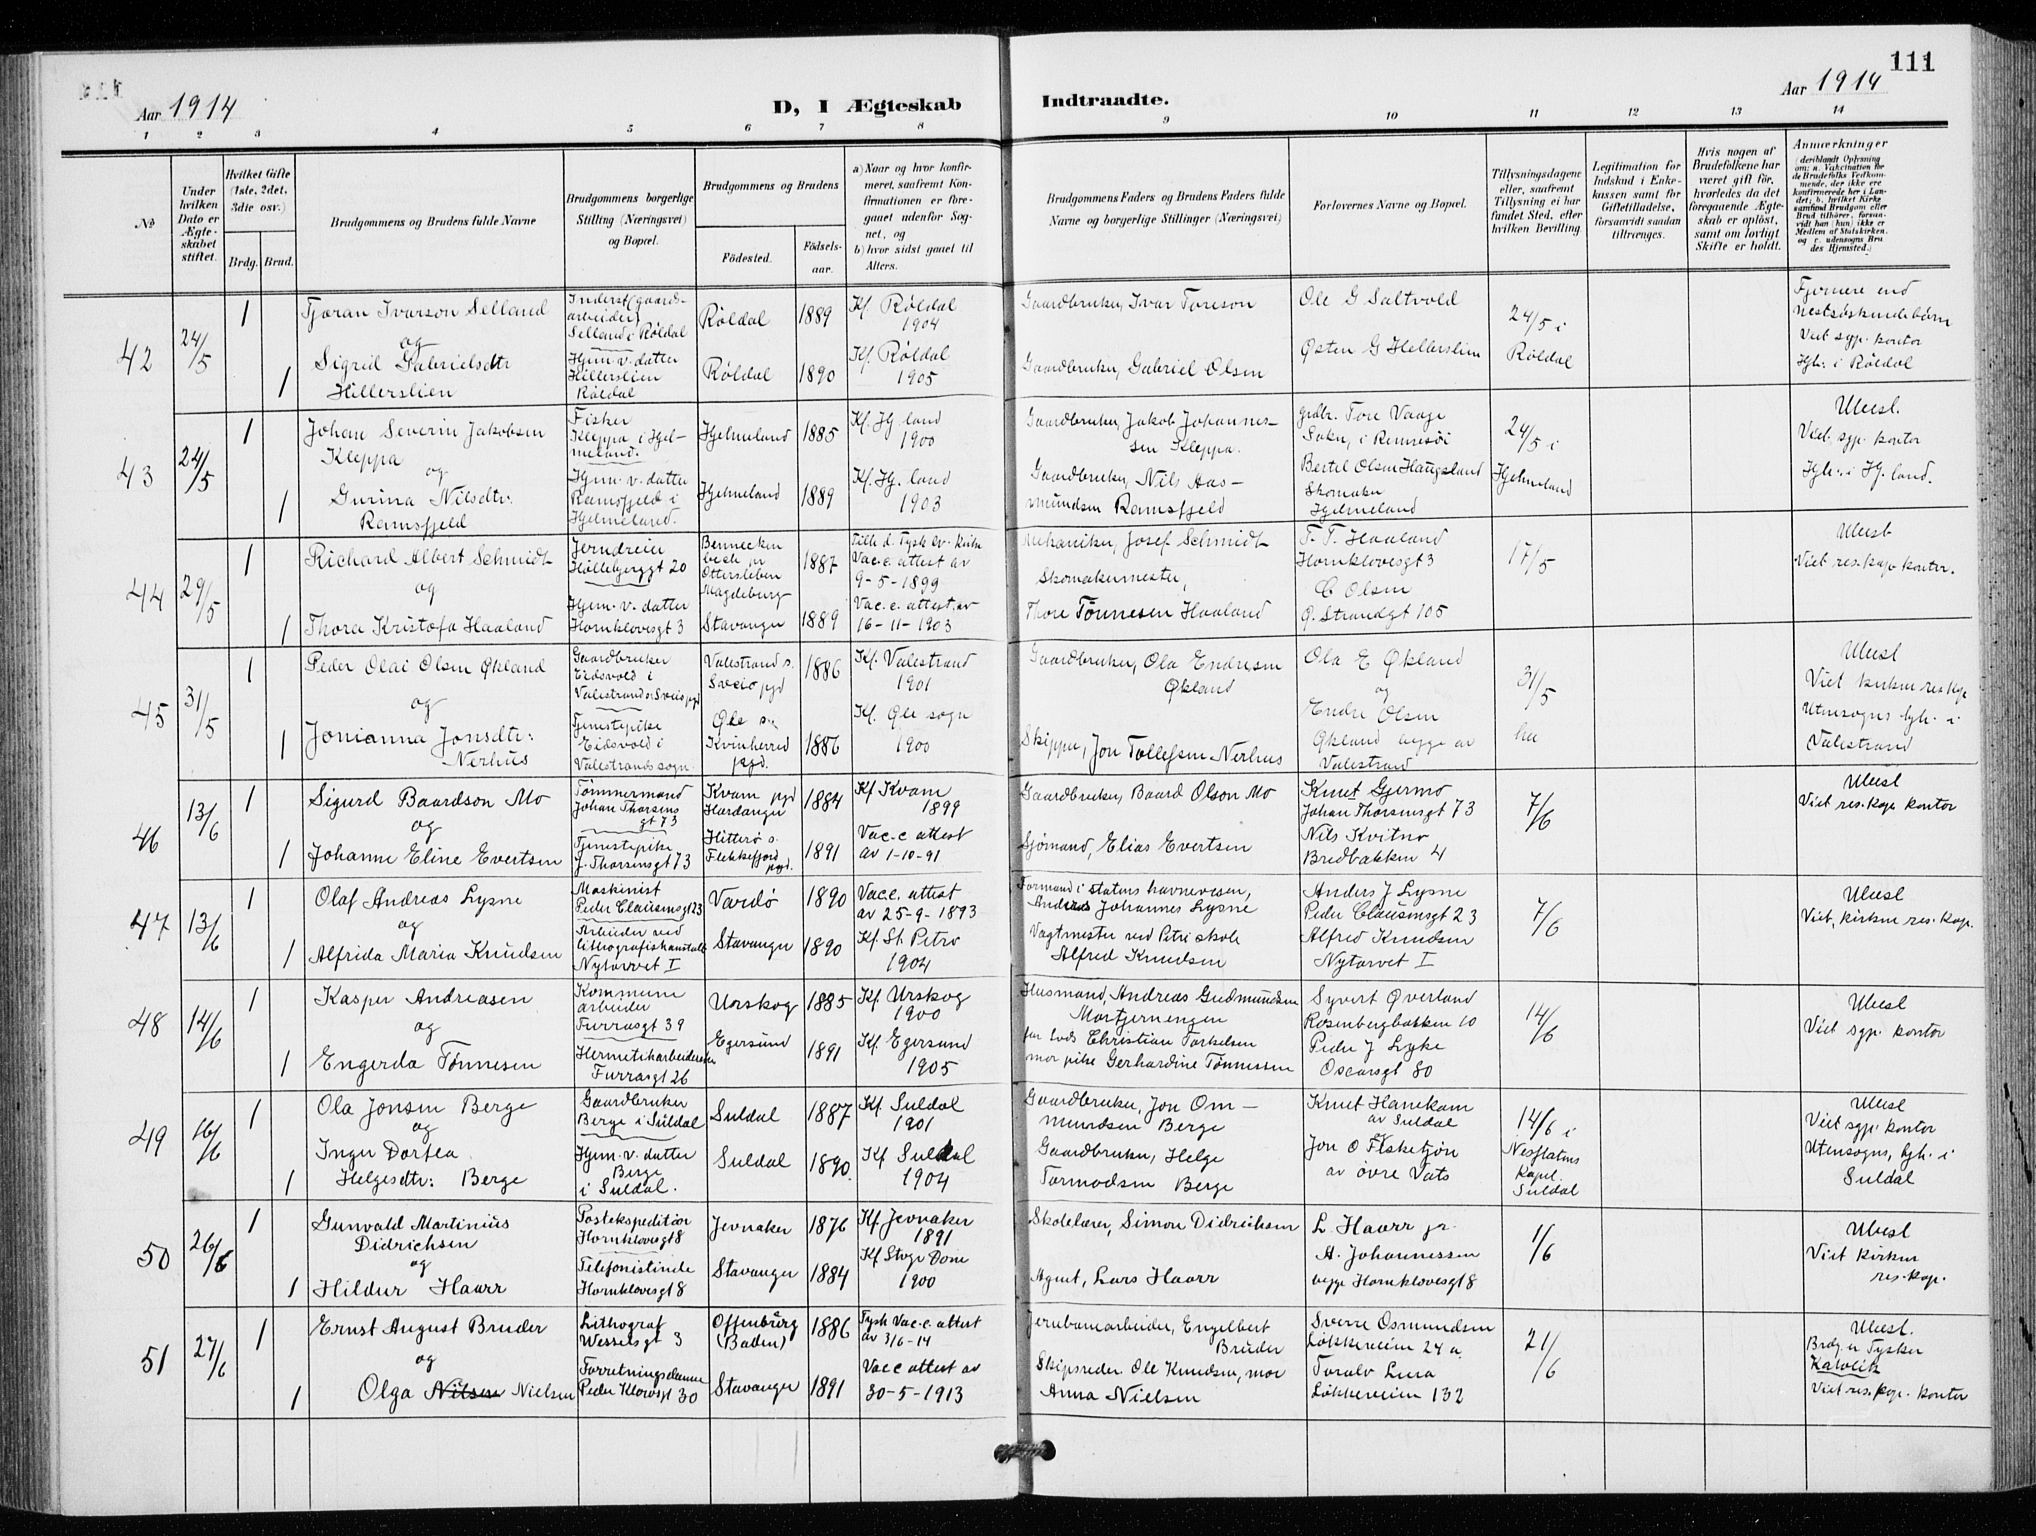 111
Aar 1914
D, I Ægteskab Indtraadte.
Aar 1914
1 2 3 4 5 6 7 8 9 10 11 12 13 14
No
Under hvilken Dato er Ægteskabet stiftet.
Hvilket Gifte (1ste, 2det, 3die osv.)
Brdg. Brud.
Brudgommens og Brudens fulde Navne
Brudgommens borgerlige Stilling (Næringsvei) og Bopæl.
Brudgommens og Brudens
Födested. Födsels-aar.
a) Naar og hvor konfirmeret, saafremt Konfirmationen er foregaaet udenfor Sognet, og
b) hvor sidst gaaet til Alters.
Brudgommens Faders og Brudens Faders fulde Navne og borgerlige Stillinger (Næringsvei)
Forlovernes Navne og Bopæl.
Tillysningsdagene eller, saafremt Tillysning ei har fundet Sted, efter hvilken Bevilling.
Legitimation for Indskud i Enkekassen samt for Giftetilladelse, forsaavidt saadan tiltrænges.
Hvis nogen af Brudefolkene har været gift før, hvorledes da det foregaaende Ægteskab er oplöst, samt om lovligt Skifte er holdt.
Anmærkninger
(deriblandt Oplysning om: a. Vakcination for de Brudefolks Vedkommende, der ikke ere konfirmerede her i Landet; b. hvilket Kirkesamfund Brudgom eller Brud tilhører, forsaavidt han (hun) ikke er Medlem af Statskirken, og c. udensogns Brudes Hjemsted.)
42
24/5
1
Tjæran Ivarson Selland
og
1
Sigrid Gabrielsdtr
Hillerslien
Inderst (gaardsarbeider)
Selland i Røldal
Hjem. v. datter
Hillerslien
Røldal
Røldal 1889
Røldal 1890
Kf. Røldal
1904
Kf. Røldal
1905
Gaardbruker, Ivar Toreson
Gaardbruker, Gabriel Olsen
Ole G Saltvold
Østen G Hellerslien
24/5 i
Røldal
Fjernere end
næstsøskendebørn
Viet sgp. kontor
Hjh. i Røldal
43
24/5
1
Johan Severin Jakobsen
Kleppa
og
1
Gurina Nilsdtr.
Ramsfjeld
Fisker
Kleppa i Hjelmeland.
Hjem. v. datter
Ramsfjeld i
Hjelmeland.
Hjelmeland 1885
Hjelmeland 1889
Kf. Hj. land
1900
Kf. Hj. land
1903
Gaardbruker, Jakob Johannessen Kleppa.
Gaardbruker, Nils Aasmundsen Ramsfjeld
grdbr. Tore Vaage
Sokn, i Rennesöi
Bertel Olsen Haugsland
Skomaker
Hjelmeland
24/5 i
Hjelmeland
Ubesl.
Viet. sgp. kontor
Hjh. i Hj. land.
44
29/5
1
Richard Albert Schmidt
og
1
Thora Kristofa Haaland
Jerndreier
Hillebjerggt 20
Hjem. v. datter
Hornklovesgt 3
Bennecken
beck pr
Ottersleben
Magdeburg
1887
Stavanger 1889
Tilh. d. Tysk ev. kirke
Vac.c. attest av
9-5-1899
Vac.c. attest av
16-11-1903
Mekaniker, Josef Schmidt
Skomakermester,
Thore Tönnesen Haaland
T. T. Haaland
Hornklovesgt 3
C Olsen
Ø. Strandgt 105
17/5
Ubesl
Viet res.kap kontor.
45
31/5
1
Peder Olai Olsen Økland
og
1
Jonianna Jonsdtr.
Nerhus
Gaardbruker
Eidsvold i
Valestrand s. Sveio pgd
Tjenestepike
Eidsvold i
Valestrands sogn.
Valestrand s.
Sveio pgd
1886
Øle s.
Kvinherred
pgd.
1886
Kf. Valestrand
1901
Kf. Øle sogn
1900
Gaardbruker, Ola Endresen
Økland
Skipper, Jon Tollefsen Nerhus
Ola E Økland
og
Endre Olsen
Økland begge av
Valestrand
31/5
her
Ubesl
Viet kirken res.kap
Utensogns hjh. i
Valestrand
46
13/6
1
Sigurd Baardson Mo
og
1
Johanne Eline Evertsen
Tømmermand
Johan Thorsens
gt 73
Tjenestepike
J. Thorsensgt 73
Kvam pgd
Hardanger
1884
Hitterø s.
Flekkefjord
pgd.
1891
Kf Kvam
1899
Vac.c attest
av 1-10-91
Gaardbruker, Baard Olson Mo
Sjömand, Elias Evertsen
Knut Gjermo
Johan Thorsensgt 73
Nils Kvitno
Bredbakken 4
7/6
Ubesl
Viet res.kap. kontor
47
13/6
1
Olaf Andreas Lysne
og
1
Alfrida Maria Knudsen
Maskinist
Peder Clausensgt 23
Arbeider ved
lithografisk anstalt
Nytorvet I
Vardö 1890
Stavanger 1890
Vac.c. attest
av 25-9-1893
Kf. St. Petro
1904
Formand i statens havnevesen,
Anders Johannes Lysne
Vagtmester ved Petri skole
Alfred Knudsen
Anders J Lysne
Peder Clausensgt 23
Alfred Knudsen
Nytorvet I
7/6
Ubesl
Viet, kirken res.kap.
48
14/6
1
Kasper Andreasen
og
1
Engerda Tönnesen
Kommune
arbeider
Furrasgt 39
Hermetikarbeiderske
Furrasgt 26
Urskog 1885
Egersund 1891
Kf. Urskog
1900
Kf. Egersund
1905
Husmand, Andreas Gudmundsen
Mortjernengen
far Lods Christian Torkelsen
mor pike Gerhardine Tönnessen
Syvert Øverland
Rosenbergbakken 10
Peder J Lyke
Oscarsgt 80
14/6
Ubesl
Viet sgp. kontor
49
16/6
1
Ola Jonsen Berge
og
1
Inger Dortea
Helgesdtr. Berge
Gaardbruker
Berge i Suldal
Hjem. v. datter
Berge
i Suldal.
Suldal 1887
Suldal 1890
Kf. Suldal
1901
Kf Suldal
1904
Gaardbruker, Jon Ommundsen Berge
Gaardbruker, Helge
Tormodsen Berge
Knut Hanekam
av Suldal
Jon O Fisketjön
av övre Vats
14/6 i
Nesflatens
kapel.
Suldal
Ubesl
Viet sgp. kontor
Utensogns, hjh. i
Suldal
50
26/6
1
Gunvald Martinius
Didrichsen
og
1
Hildur Haarr
Postekspeditör
Hornklovesgt 8
Telefonistinde
Hornklovesgt 8
Jevnaker 1876
Stavanger 1884
Kf. Jevnaker
1891
Kf Stvgr Dom
1900
Skolelærer, Simon Didrichsen
Agent, Lars Haarr
L. Haarr jr.
A. Johannessen
begge Hornklovesgt 8
1/6
Ubesl
Viet kirken
res.kap.
51
27/6
1
Ernst August Bruder
og
1
Olga Nilsen Nielsen
Lithograf
Wesselsgt 3
Forretningsdame
Peder Klowsgt 30
Offenburg
(Baden)
1886
Stavanger 1891
Tysk Vac.c. attest
av 3/6-14
Vac c attest av
30-5-1913
Jernbanearbeider, Engelbert
Bruder
Skipsreder Ole Knudsen, mor
Anna Nielsen
Sverre Osmundsen
Løkkeveien 24 a
Toralv Lura
Løkkeveien 132
21/6
Ubesl.
Brdg. er Tysker
Katolik
Viet res.kap. kontor